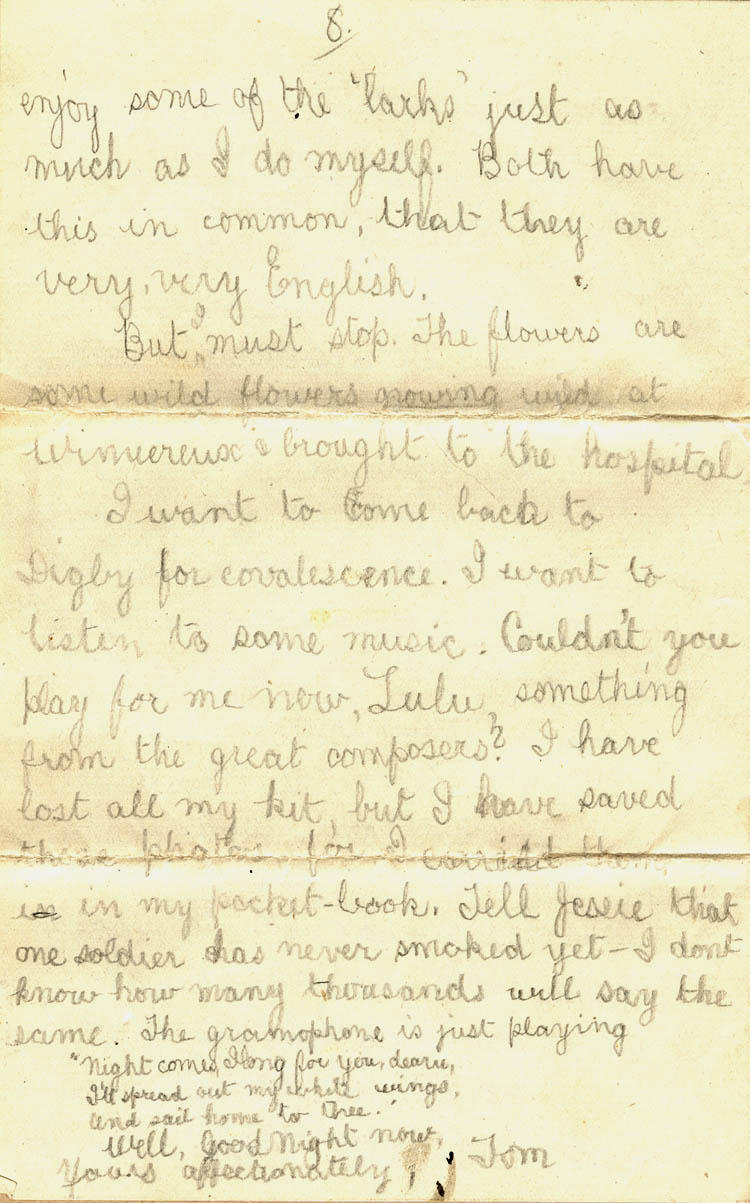 8.
enjoy some of the "larks" just as
much as I do myself. Both have
this in common, that they are
very, very English.
But I must stop. The flowers are
some wild flowers growing wild at
Wimereux & brought to the hospital.
I want to come back to
Digby for covalescence. I want to
listen to some music. Couldn't you
play for me now, Lulu, something
from the great composers? I have
lost all my kit, but I have saved
these photos for I carried them
in in my pocket-book. Tell Jessie that
one soldier has never smoked yet - I dont
know how many thousands will say the
same. The gramophone is just playing
"Night comes, I long for you, dearie,
I'll spread out my white wings,
And sail home to thee."
Well, Good Night now,
Yours affectionately, Tom